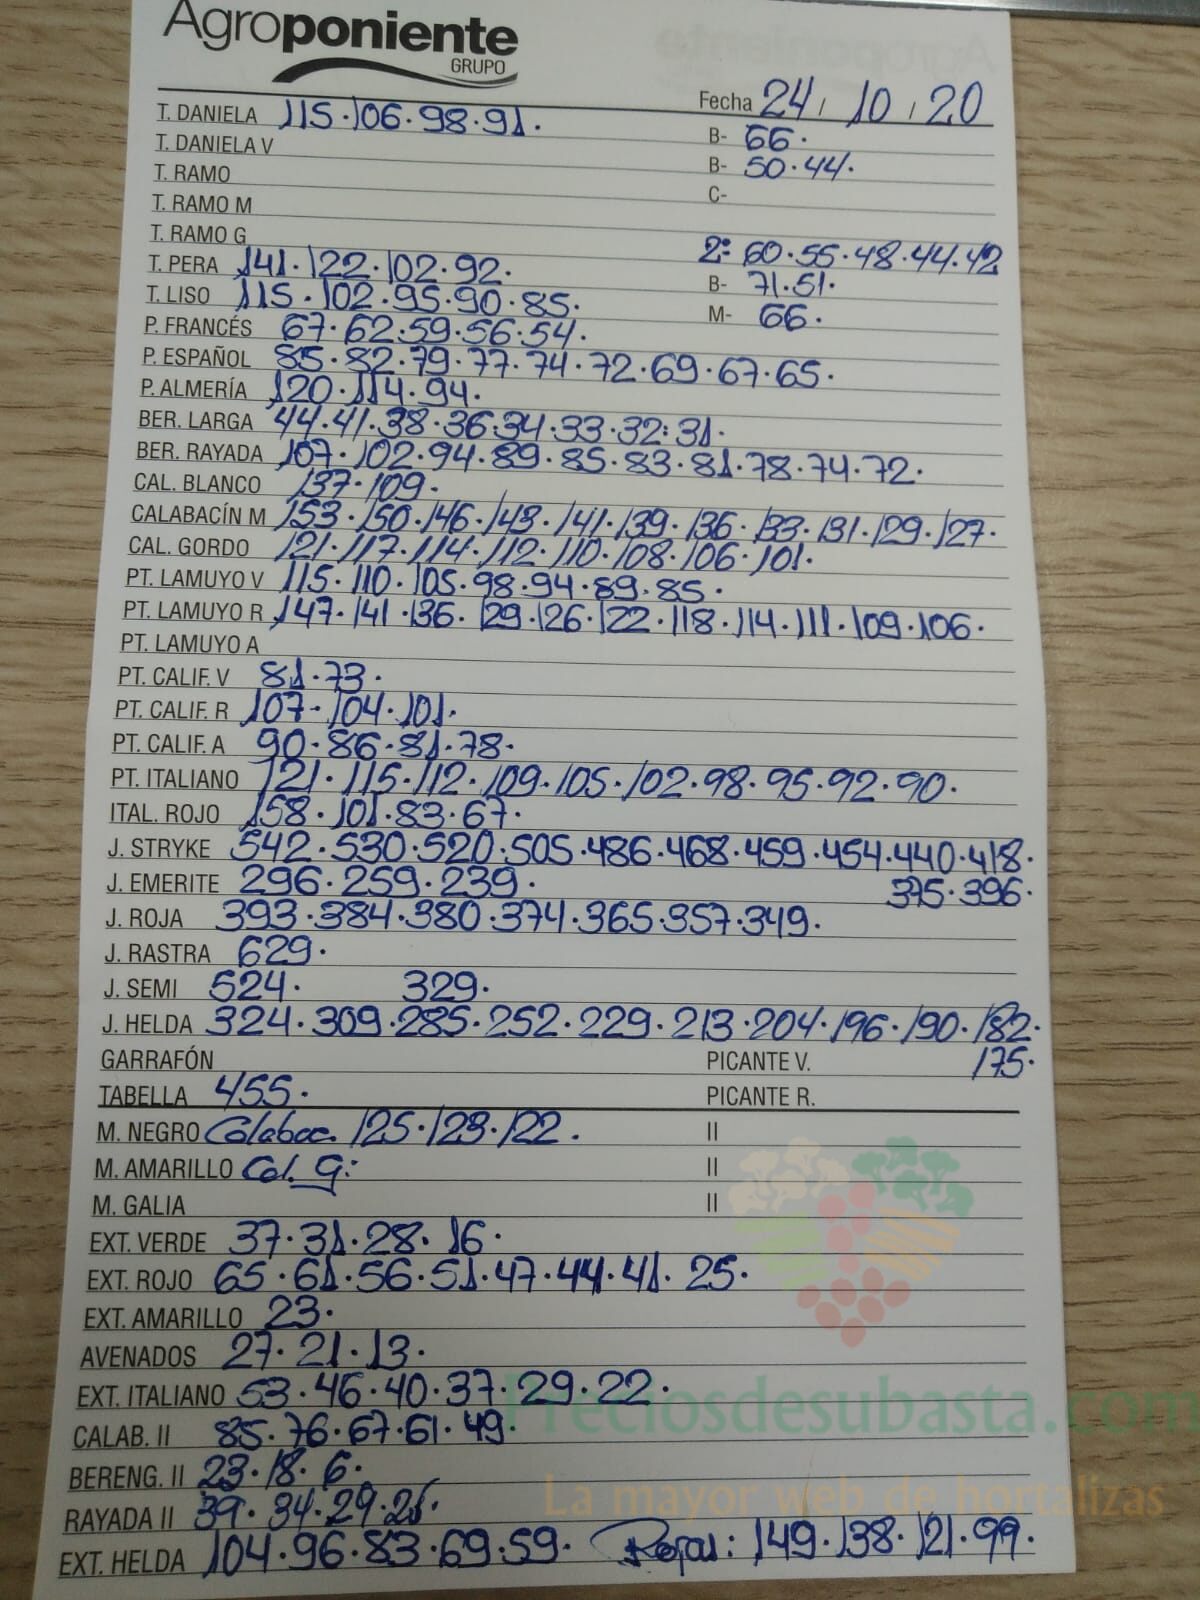 Agroponiente
GRUPO
Fecha 24 / 10 / 20
T. DANIELA 115·106·98·91· B- 66·
T. DANELA V B- 50·44·
T. RAMO C-
T. RAMO M
T. RAMO G 2: 60·55·48·44·42
T. PERA 141·122·102·92· B- 71·51·
T. LISO 115·102·95·90·85· M- 66·
P. FRANCÉS 67·62·59·56·54·
P. ESPAÑOL 85·82·79·77·74·72·69·67·65·
P. ALMERÍA 120·114·94·
BER. LARGA 44·41·38·36·34·33·32·31·
BER. RAYADA 107·102·94·89·85·83·81·78·74·72·
CAL. BLANCO 137·109·
CALABACÍN M 153·150·146·143·141·139·136·133·131·129·127·
CAL. GORDO 121·117·114·112·110·108·106·101·
PT. LAMUYO V 115·110·105·98·94·89·85·
PT. LAMUYO R 147·141·136·129·126·122·118·114·111·109·106·
PT. LAMUYO A
PT. CALIF. V 81·73·
PT. CALIF. R 107·104·101·
PT. CALIF. A 90·86·81·78·
PT. ITALIANO 121·115·112·109·105·102·98·95·92·90·
ITAL. ROJO 158·101·83·67·
J. STRYKE 542·530·520·505·486·468·459·454·440·418·
J. EMERITE 296·259·239· 375·396·
J. ROJA 393·384·380·374·365·357·349·
J. RASTRA 629·
J. SEMI 524· 329·
J. HELDA 324·309·285·252·229·213·204·196·190·182·
GARRAFÓN PICANTE V. 175·
TABELLA 455· PICANTE R.
M. NEGRO Calabac. 125·123·122· II
M. AMARILLO Cal. G: II
M. GALIA II
EXT. VERDE 37·31·28·16·
EXT. ROJO 65·61·56·51·47·44·41·25·
EXT. AMARILLO 23·
AVENADOS 27·21·13·
EXT. ITALIANO 53·46·40·37·29·22·
Preciosdesubasta.com
CALAB. II 85·76·67·61·49·
BERENG. II 23·18·6·
La mayor web de hortalizas
RAYADA II 39·34·29·21·
EXT. HELDA 104·96·83·69·59· Rojas: 149·138·121·99·